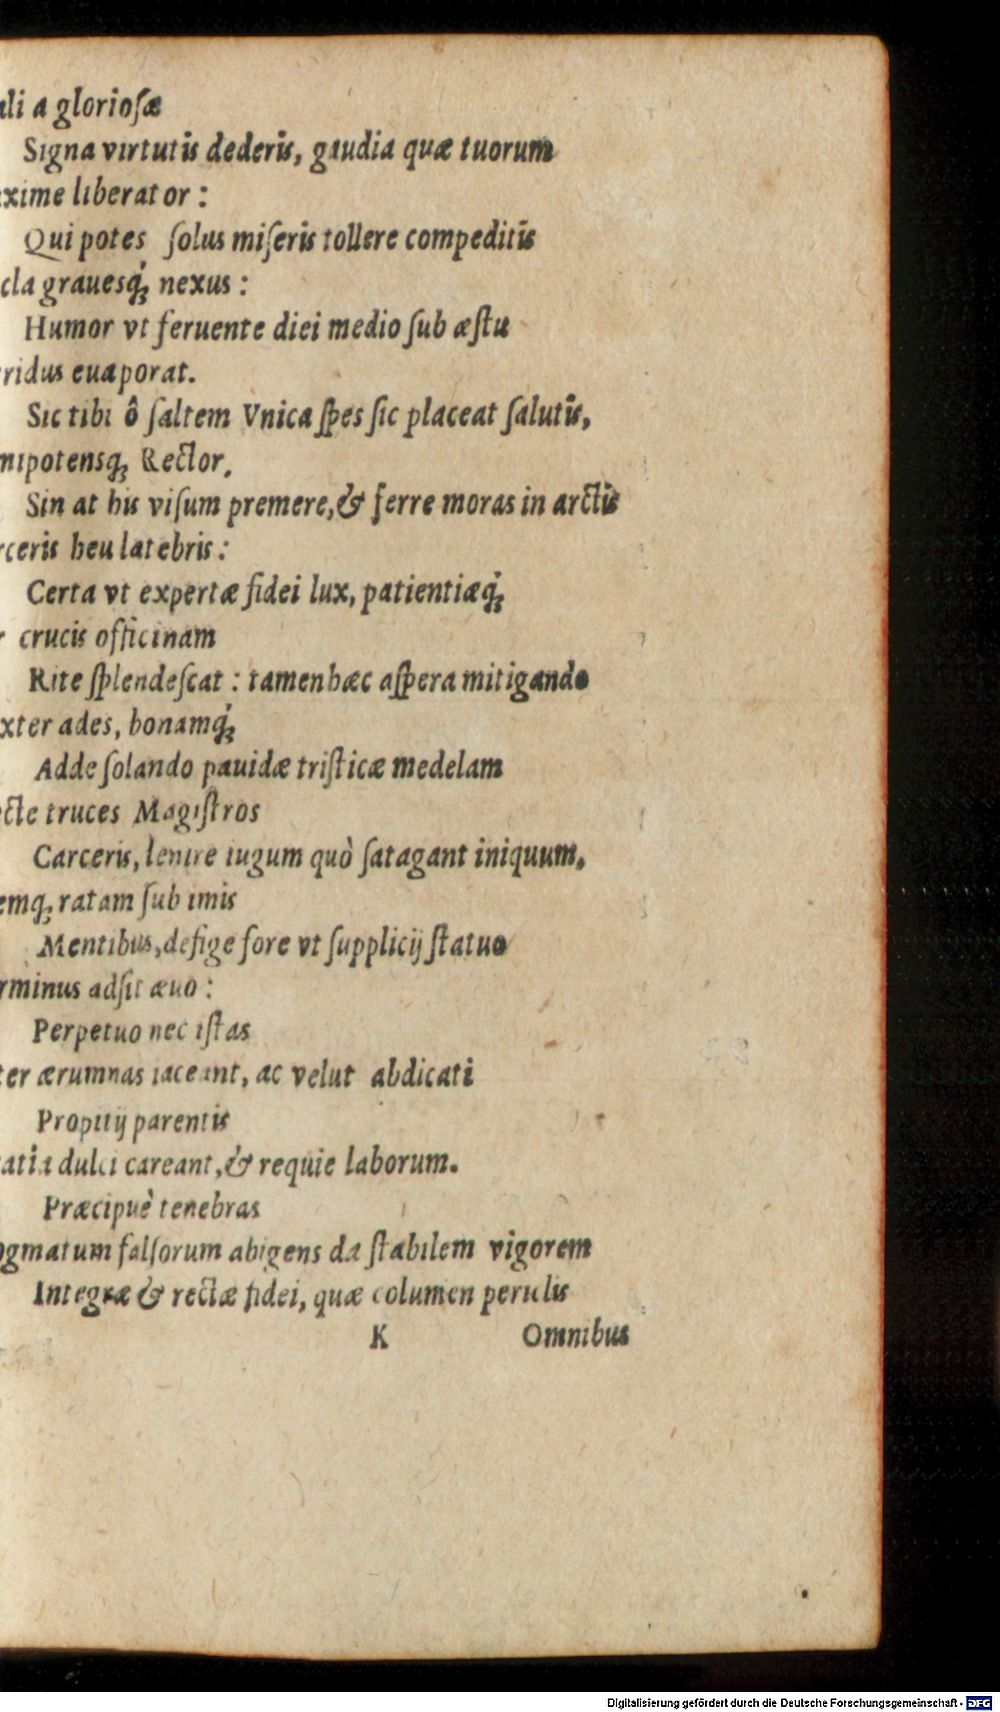 a glorioſæ
Signa virtutis dederis, gaudia quæ tuorum
liberator :
Qui potes ſolus miſeris tollere compeditis
graueſq́; nexus :
Humor vt feruente dici medio ſub æſtu
euaporat.
Sic tibi ô ſaltem Vnica ſpes ſic placeat ſalutis,
Rector.
Sin at his viſum premere, & ferre moras in arctis
heu latebris :
Certa vt expertæ fidei lux, patientiæq́;
crucis officinam
Rite ſplendeſcat : tamen hæc aſpera mitigando
ades, bonamq́;
Adde ſolando pauidæ triſticæ medelam
truces Magiſtros
Carceris, lenire iugum quò ſatagant iniquum,
ratam ſub imis
Mentibus, defige fore vt ſupplicij ſtatuo
adſit æuo :
Perpetuo nec iſtas
ærumnas iaceant, ac velut abdicati
Propitij parentis
dulci careant, & requie laborum.
Præcipuè tenebras
falſorum abigens da ſtabilem vigorem
Integræ & rectæ fidei, quæ columen periclis
K Omnibus
Digitalisierung gefördert durch die Deutsche Forschungsgemeinschaft - DFG